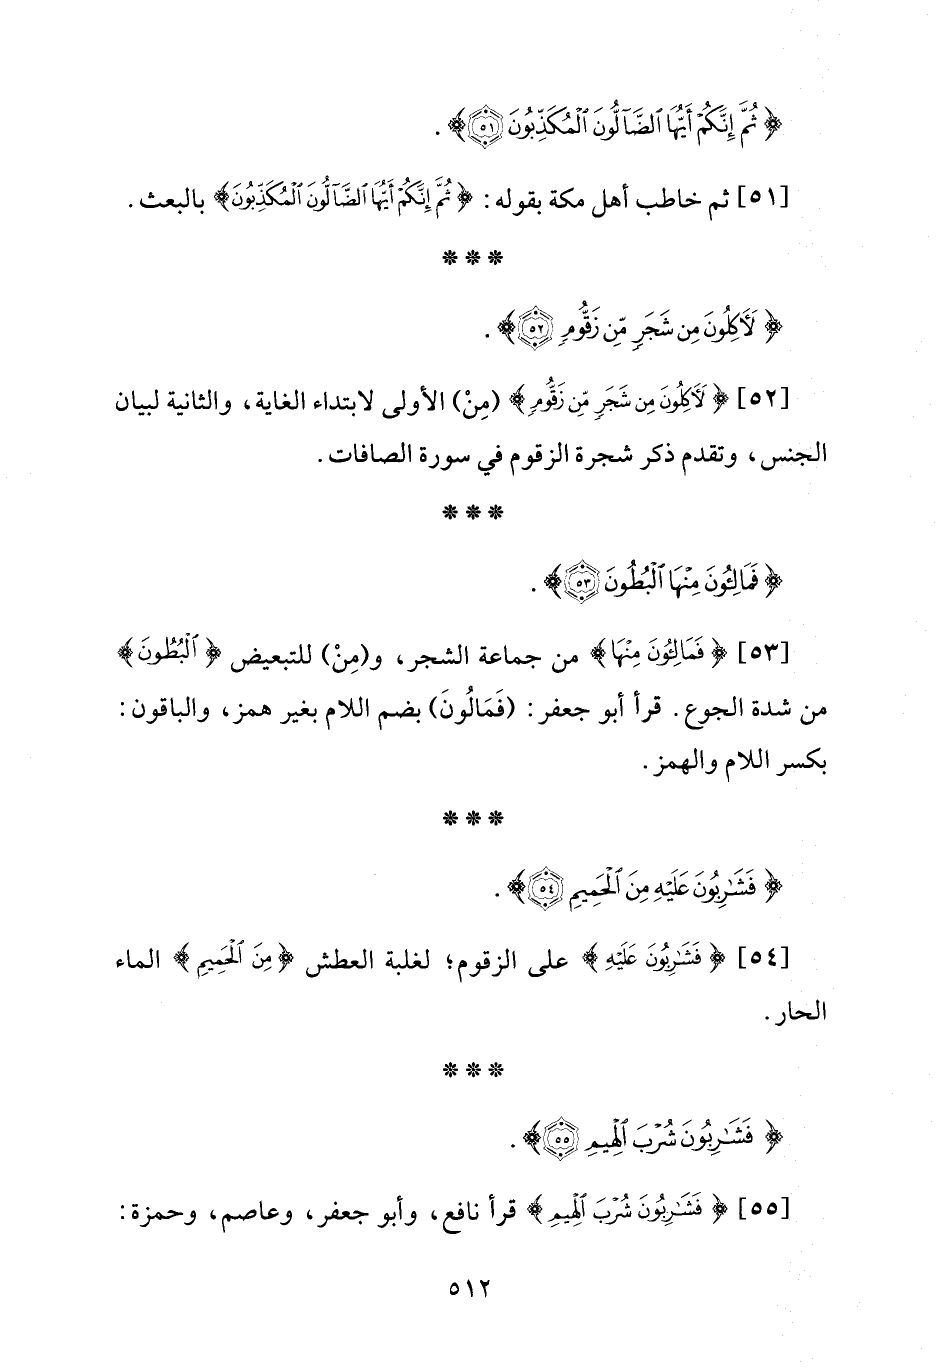 ﴿ ثُمَّ إِنَّكُمْ أَيُّهَا ٱلضَّآلُّونَ ٱلْمُكَذِّبُونَ ۝٥١ ﴾ .
[٥١] ثم خاطب أهل مكة بقوله: ﴿ ثُمَّ إِنَّكُمْ أَيُّهَا ٱلضَّآلُّونَ ٱلْمُكَذِّبُونَ ﴾ بالبعث.
* * *
﴿ لَآكِلُونَ مِن شَجَرٍ مِّن زَقُّومٍ ۝٥٢ ﴾ .
[٥٢] ﴿ لَآكِلُونَ مِن شَجَرٍ مِّن زَقُّومٍ ﴾ (مِنْ) الأولى لابتداء الغاية، والثانية لبيان
الجنس، وتقدم ذكر شجرة الزقوم في سورة الصافات.
* * *
﴿ فَمَالِئُونَ مِنْهَا ٱلْبُطُونَ ۝٥٣ ﴾ .
[٥٣] ﴿ فَمَالِئُونَ مِنْهَا ﴾ من جماعة الشجر، و(مِنْ) للتبعيض ﴿ ٱلْبُطُونَ ﴾
من شدة الجوع. قرأ أبو جعفر: (فَمَالُونَ) بضم اللام بغير همز، والباقون:
بكسر اللام والهمز.
* * *
﴿ فَشَٰرِبُونَ عَلَيْهِ مِنَ ٱلْحَمِيمِ ۝٥٤ ﴾ .
[٥٤] ﴿ فَشَٰرِبُونَ عَلَيْهِ ﴾ على الزقوم؛ لغلبة العطش ﴿ مِنَ ٱلْحَمِيمِ ﴾ الماء
الحار.
* * *
﴿ فَشَٰرِبُونَ شُرْبَ ٱلْهِيمِ ۝٥٥ ﴾ .
[٥٥] ﴿ فَشَٰرِبُونَ شُرْبَ ٱلْهِيمِ ﴾ قرأ نافع، وأبو جعفر، وعاصم، وحمزة:
٥١٢